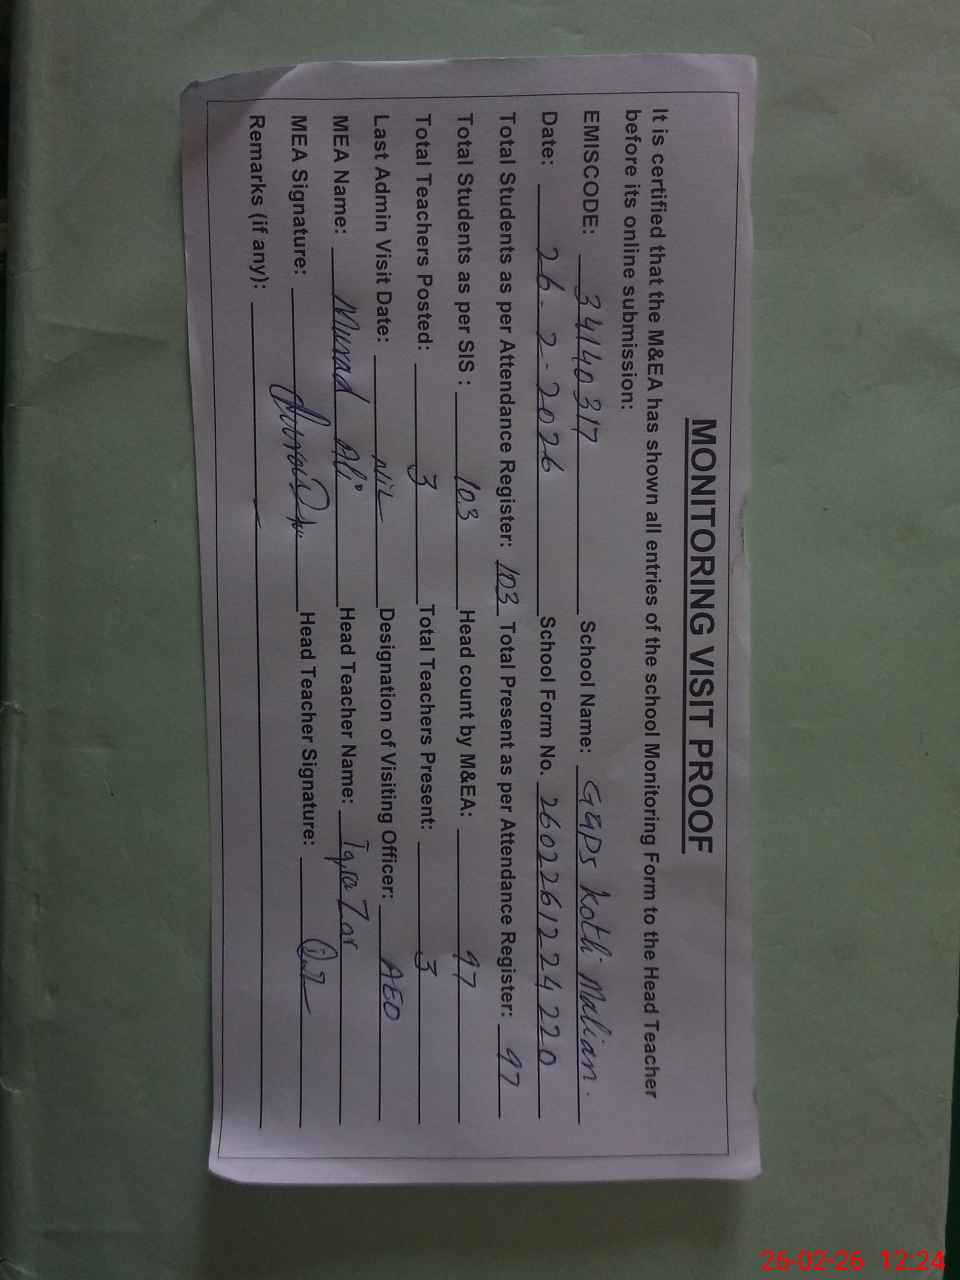 MONITORING VISIT PROOF
It is certified that the M&EA has shown all entries of the school Monitoring Form to the Head Teacher
before its online submission:
EMISCODE: 34140317 School Name: GGPS Kothi Malian.
Date: 26-2-2026 School Form No. 2602261224220
Total Students as per Attendance Register: 103 Total Present as per Attendance Register: 97
Total Students as per SIS : 103 Head count by M&EA: 97
Total Teachers Posted: 3 Total Teachers Present: 3
Last Admin Visit Date: Nil Designation of Visiting Officer: AEO
MEA Name: Murad Ali Head Teacher Name: Iqra Zar
MEA Signature: Head Teacher Signature:
Remarks (if any):
26-02-26 12:24